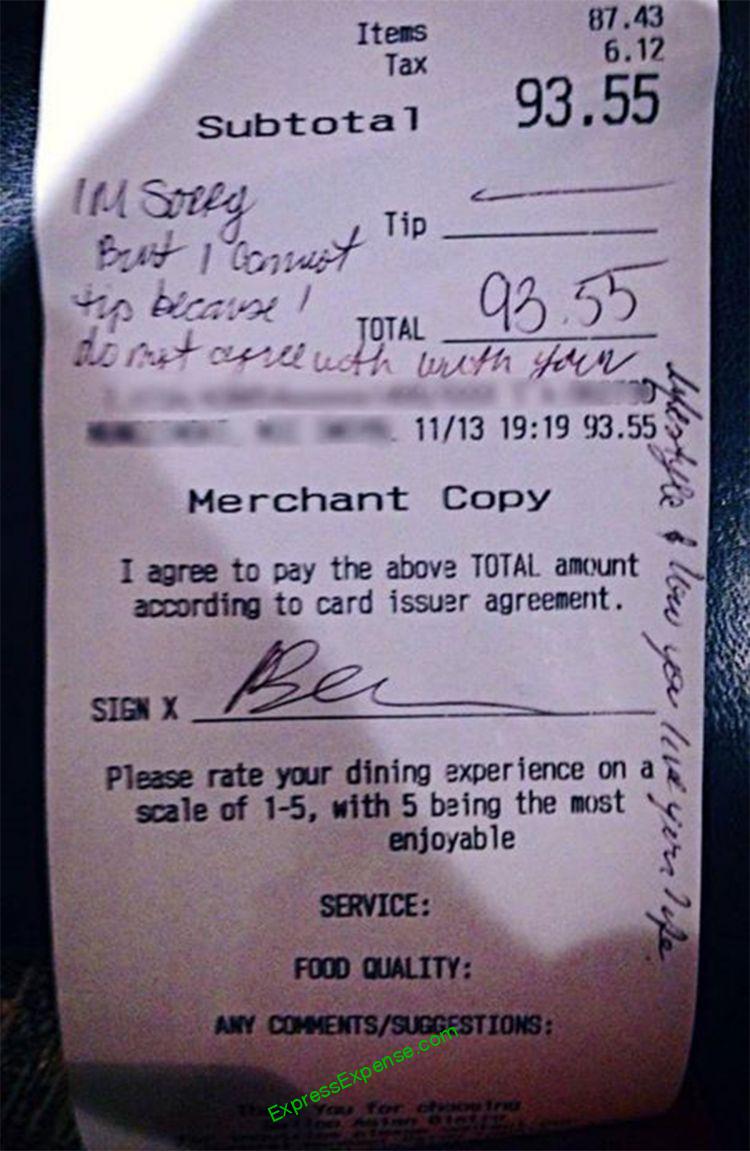 Items 87.43
Tax 6.12
Subtotal 93.55
IM Sorry
But I cannot
tip because I
do not agree with with your
lifestyle & how you live your life.
Tip
TOTAL 93.55
11/13 19:19 93.55
Merchant Copy
I agree to pay the above TOTAL amount
according to card issuer agreement.
SIGN X
Please rate your dining experience on a
scale of 1-5, with 5 being the most
enjoyable
SERVICE:
FOOD QUALITY:
ANY COMMENTS/SUGGESTIONS:
ExpressExpense.com
You for choosing
Asian Bistro